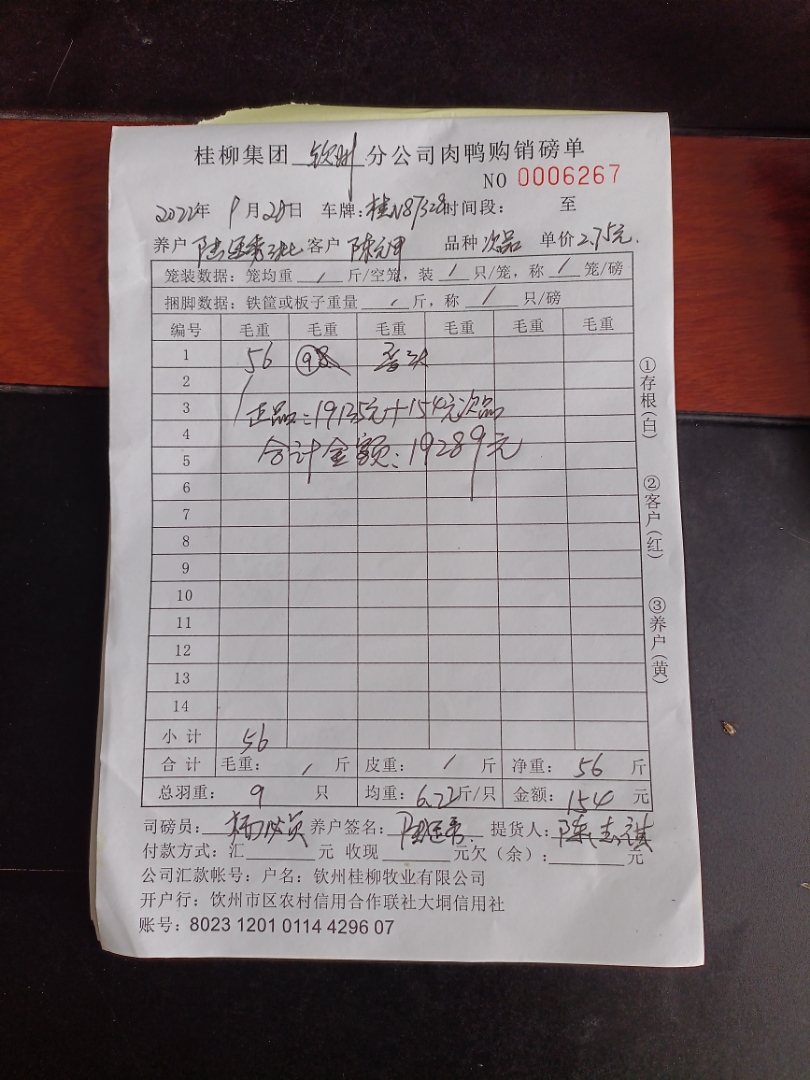 桂柳集团 钦州 分公司肉鸭购销磅单
NO 0006267
2022年 9月28日 车牌:桂N87328时间段: 至
养户 客户 陈元甲 品种 次品 单价 2.75元.
笼装数据:笼均重 / 斤/空笼,装 / 只/笼,称 / 笼/磅
捆脚数据:铁筐或板子重量 / 斤,称 / 只/磅
编号 毛重 毛重 毛重 毛重 毛重 毛重
1 56
2
3 正品:19135元+154元次品
4
5 合计金额:19289元
6
7
8
9
10
11
12
13
14
小计 56
合计 毛重: / 斤 皮重: / 斤 净重: 56 斤
总羽重: 9 只 均重: 6.22斤/只 金额: 154 元
司磅员: 养户签名: 提货人:
付款方式:汇 元 收现 元欠(余): 元
公司汇款帐号:户名:钦州桂柳牧业有限公司
开户行:饮州市区农村信用合作联社大垌信用社
账号:8023 1201 0114 4296 07
①存根(白)
②客户(红)
③养户(黄)